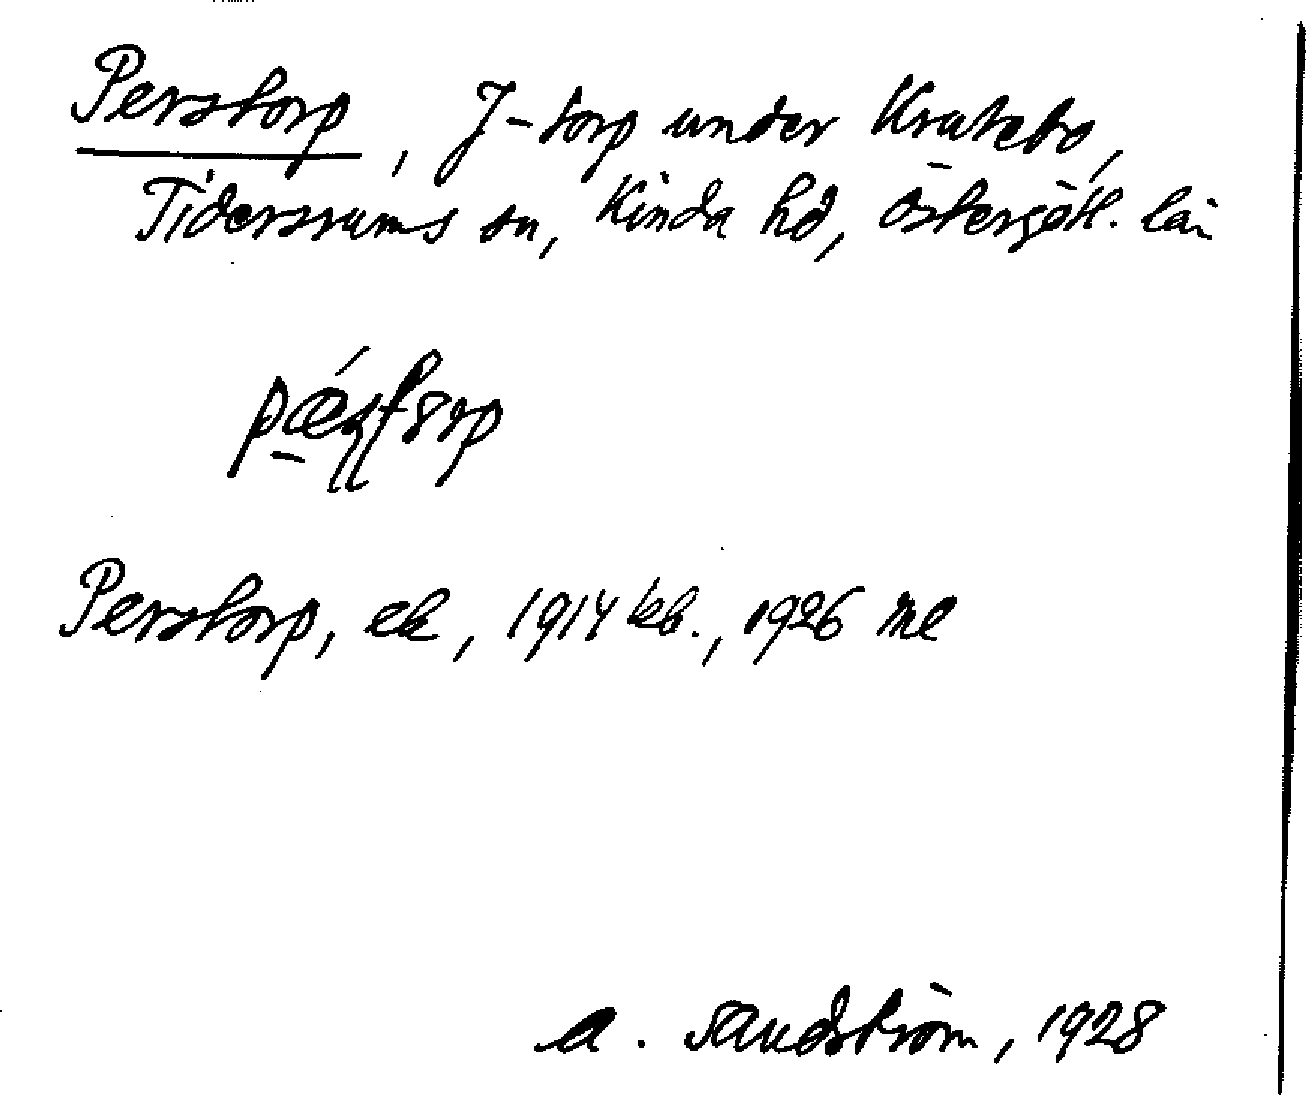 Perstorp, J-torp under Krakebo,
Tidersrums sn, Kinda hd, Östergötl. län
Perstorp, ek, 1914 kb., 1926 ml
A. Sandström, 1928